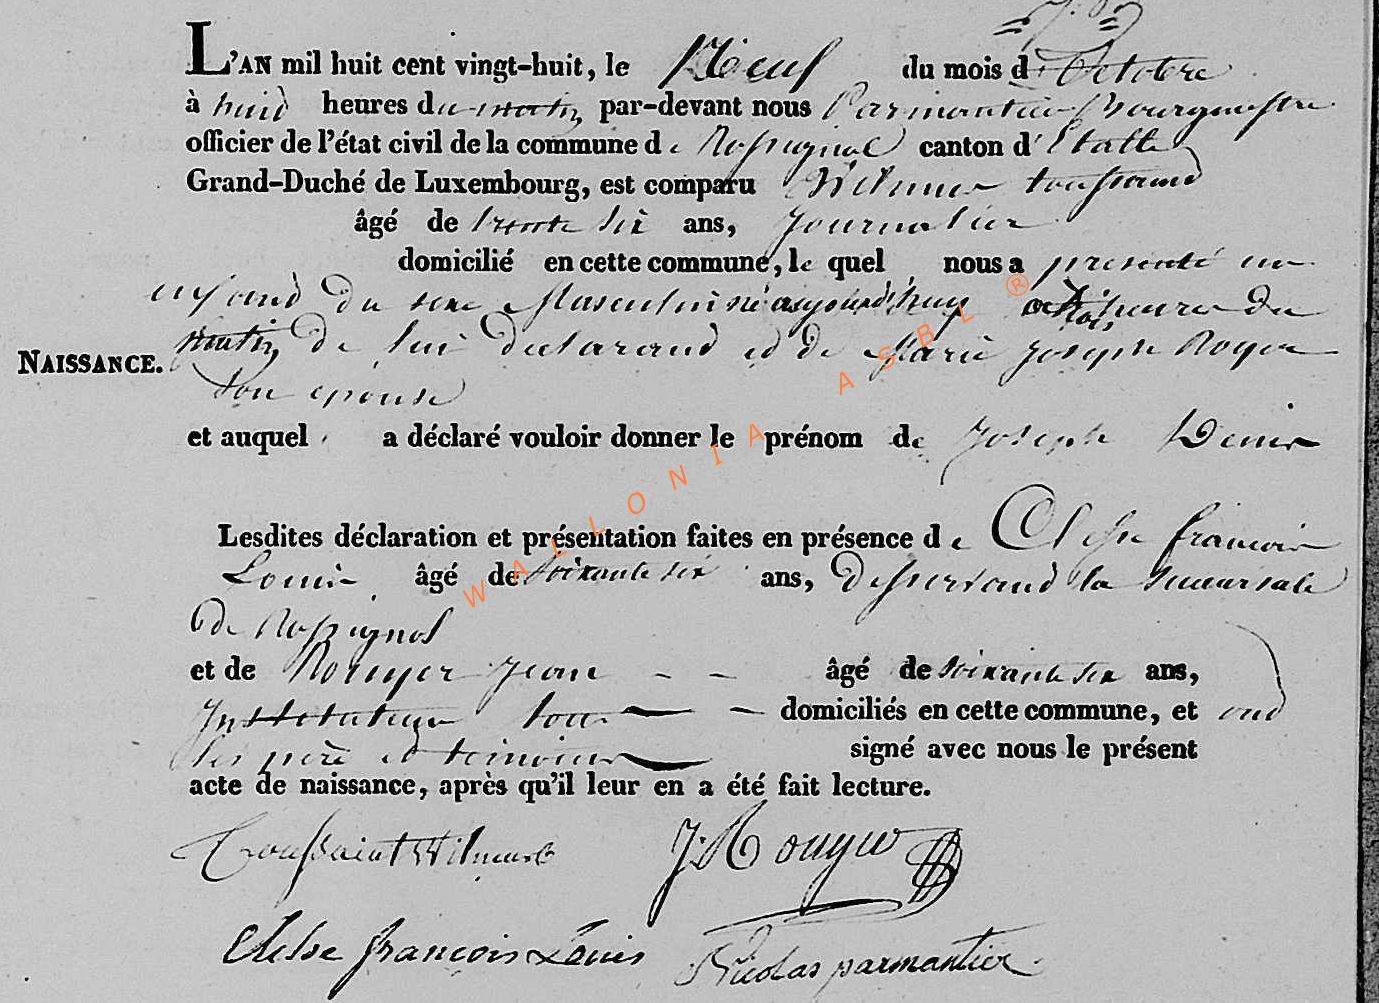 L'AN mil huit cent vingt-huit, le Neuf du mois d'Octobre
à huit heures du matin par-devant nous Parmantier Bourgmestre
officier de l'état civil de la commune de Rossignol canton d'Etalle
Grand-Duché de Luxembourg, est comparu Wilmer toussaind
âgé de trente six ans, Journalier
domicilié en cette commune, le quel nous a presenté un
enfand du sexe Masculin né aujourd'huy heures du
matin de lui declarand et de Marie Joseph
son epouse
NAISSANCE.
et auquel a déclaré vouloir donner le prénom de Joseph Denis
Lesdites déclaration et présentation faites en présence de Clesse francois
Louis âgé de soixante six ans, desservand la succursale
de Rossignol
et de Rouyer jean - - âgé de soixante six ans,
Instituteur tous — domiciliés en cette commune, et ond
les père et temoins signé avec nous le présent
acte de naissance, après qu'il leur en a été fait lecture.
J. Rouyer
Clesse francois Louis Nicolas parmantier
WALLONIA ASBL ®